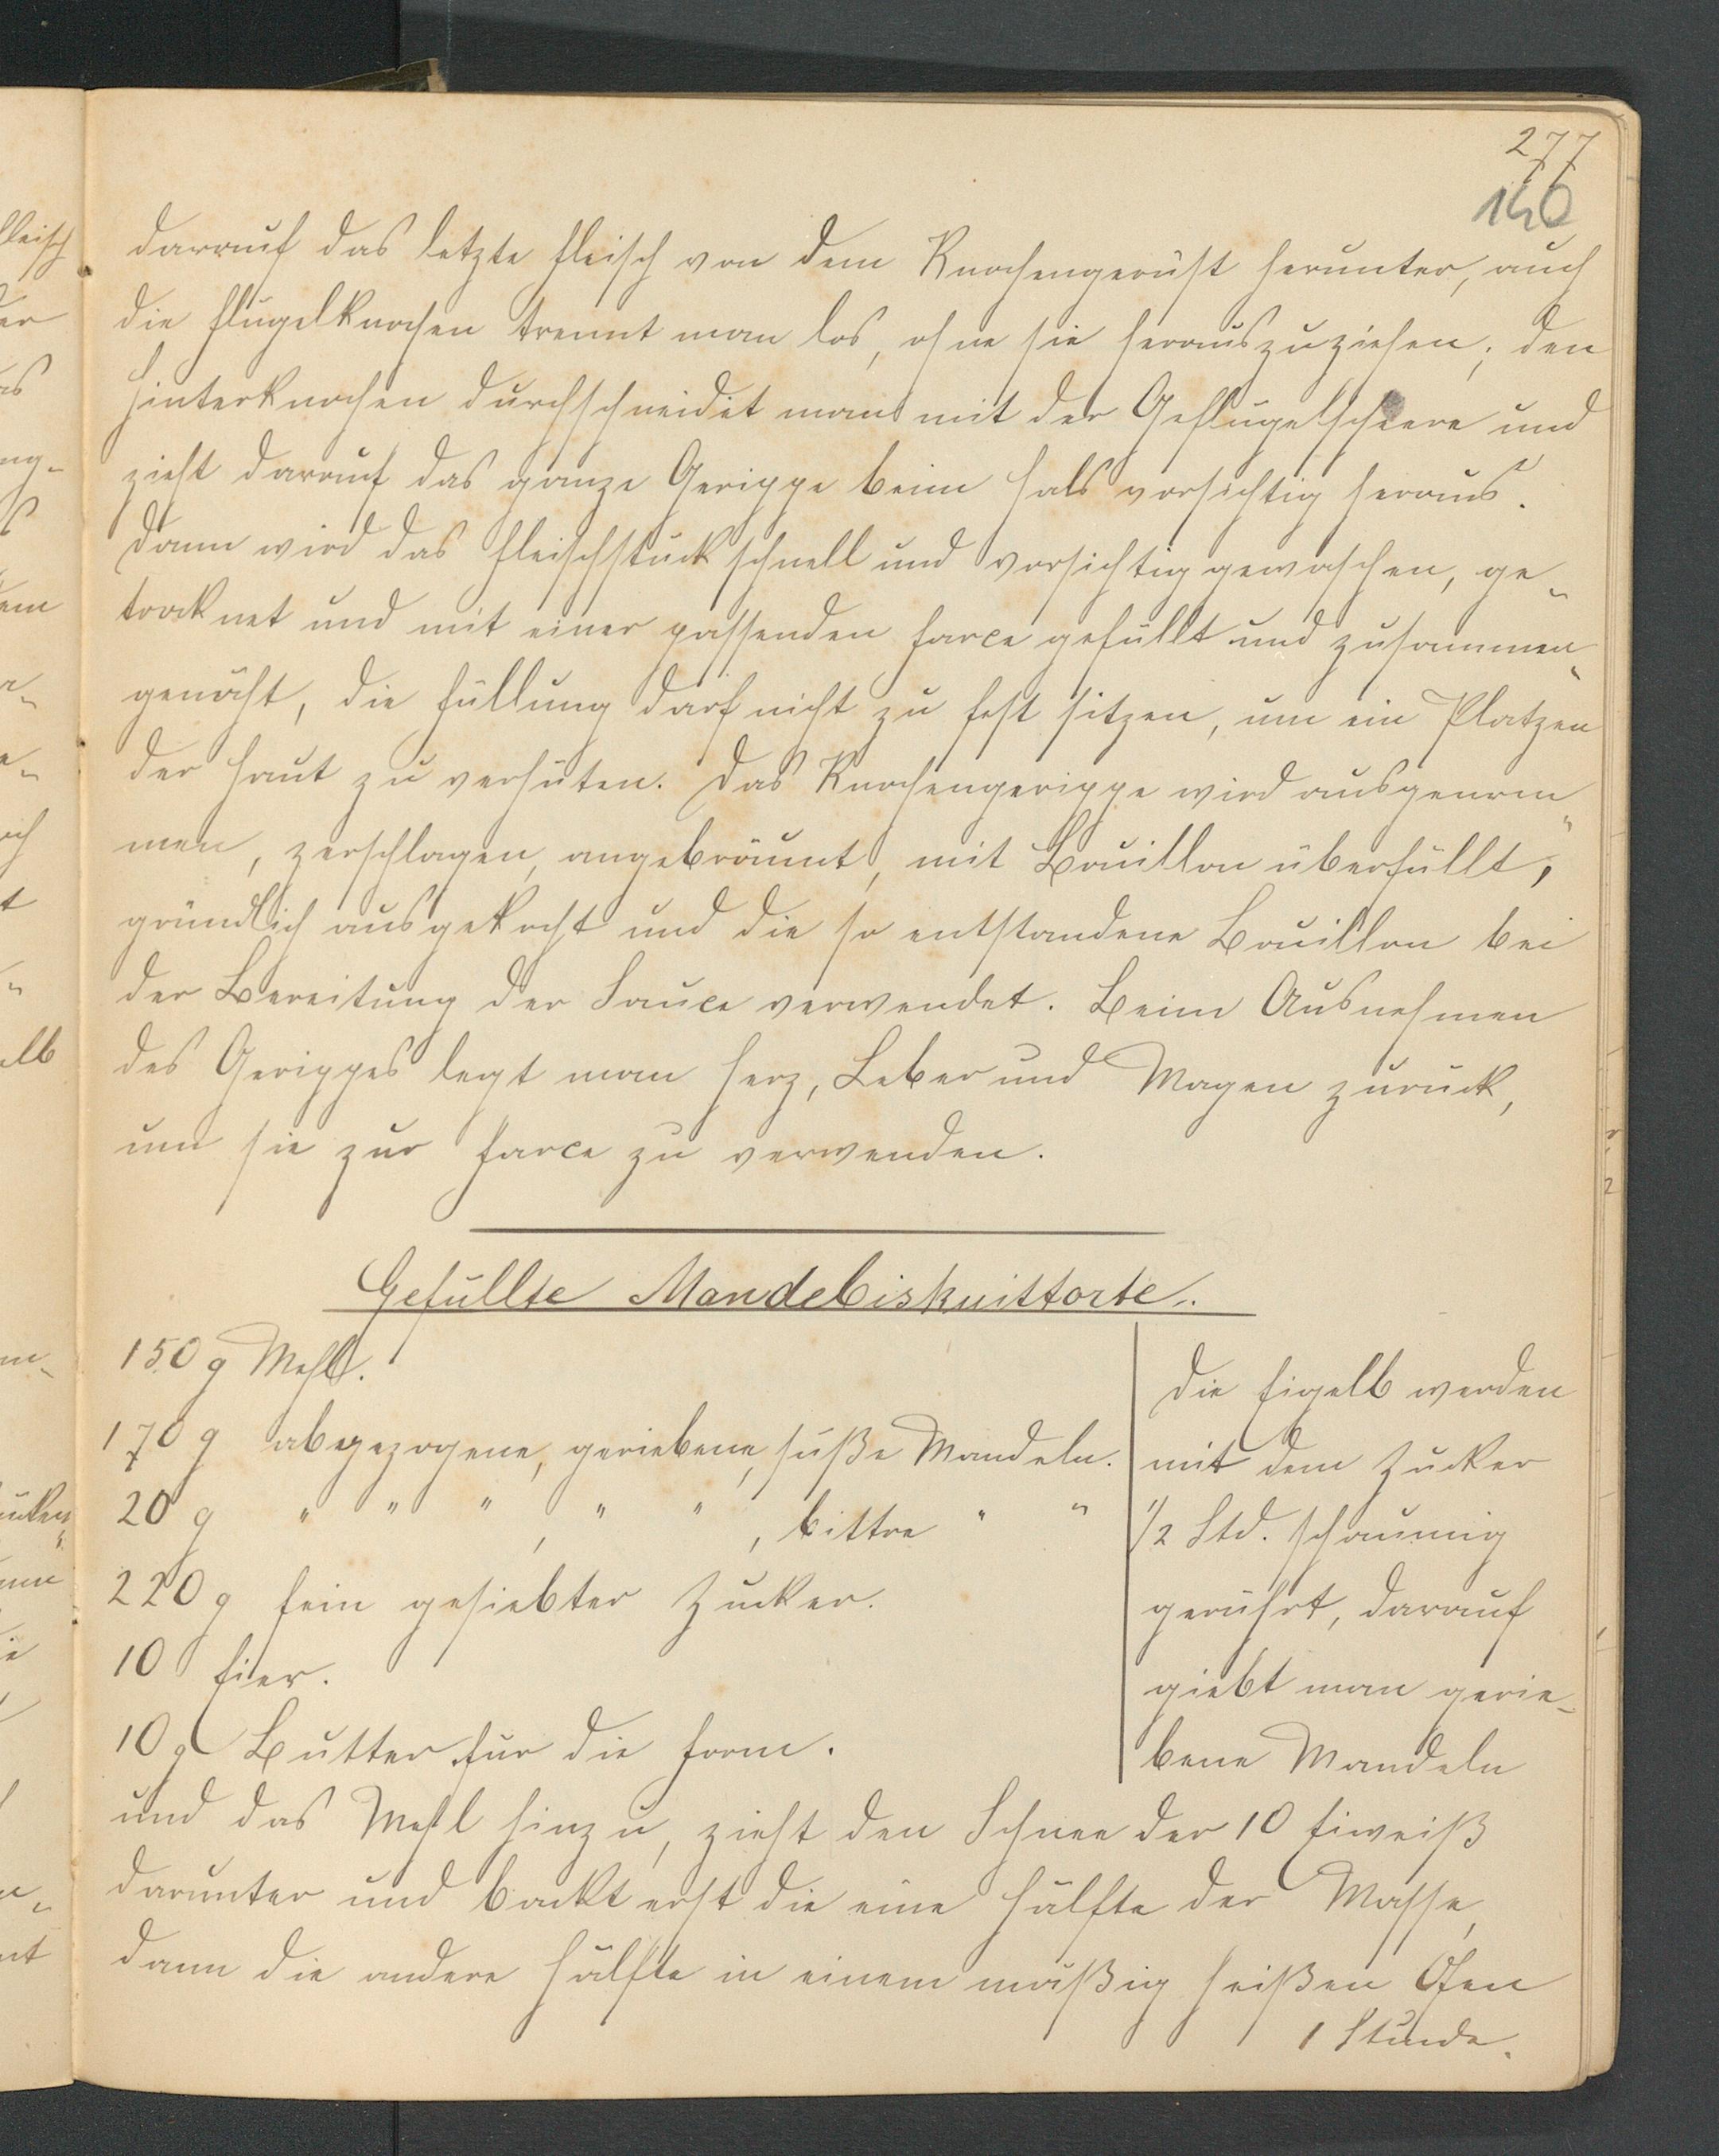 277
140
darauf das letzte Fleisch von dem Knochengerüst herunter, auch
die Flügelknochen trennt man los, ohne sie herauszuziehen; den
Hinterknochen durchschneidet man mit der Geflügelscheere und
zieht darauf das ganze Gerippe beim Hals vorsichtig heraus.
Dann wird das Fleischstück schnell und vorsichtig gewaschen, ge-
trocknet und mit einer passenden Farce gefüllt und zusammen-
genäht, die Füllung darf nicht zu fest sitzen, um ein Platzen
der Haut zu verhüten. Das Knochengerippe wird ausgenom-
men, zerschlagen, angebräunt, mit Bouillon überfüllt,
gründlich ausgekocht und die so entstandene Bouillon bei
der Bereitung der Sauce verwendet. Beim Ausnehmen
des Gerippes legt man Herz, Leber und Magen zurück,
um sie zur Farce zu verwenden.
Gefüllte Mandelbiskuittorte.
150 g Mehl.
170 g abgezogene, geriebene, süße Mandeln.
20 g " " " , " " , bittre " "
220 g fein gesiebter Zucker.
10 Eier.
10 g Butter für die Form.
Die Eigelb werden
mit dem Zucker
1/2 Std. schaumig
gerührt, darauf
giebt man gerie-
bene Mandeln
und das Mehl hinzu, zieht den Schnee der 10 Eiweiß
darunter und backt erst die eine Hälfte der Masse,
dann die andere Hälfte in einem mäßig heißen Ofen
1 Stunde.